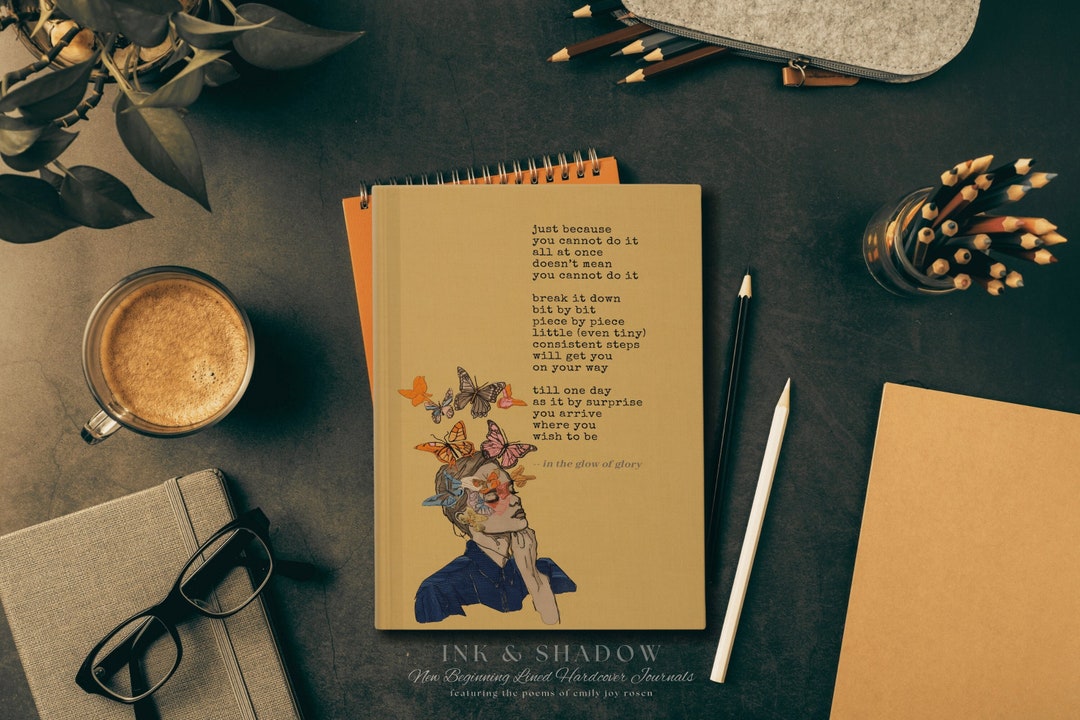 just because
you cannot do it
all at once
doesn't mean
you cannot do it
break it down
bit by bit
piece by piece
little (even tiny)
consistent steps
will get you
on your way
till one day
as it by surprise
you arrive
where you
wish to be
-- in the glow of glory
INK & SHADOW
New Beginning Lined Hardcover Journals
featuring the poems of emily joy rosen